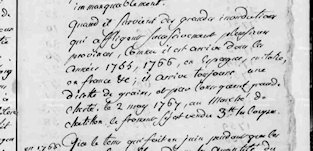 immanquablement.
Quand il survient des grandes inondations
qui affligent successivement plusieurs
provinces, comme il est arrivé dans les
années 1765, 1766, en Espagne, en italie,
en france &c; il arrive toujours une
disette de grain, et par conséquent grande
cherté, le 2 may 1767, au marché de
chatillon le froment s'est vendu 3# la Coupe.
1766
Que le tems que fait en juin pendant que les